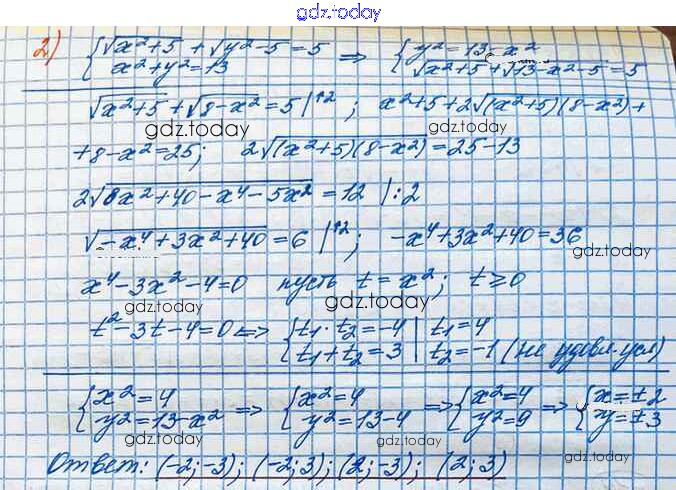 gdz.today
2) {√x²+5 + √y²-5 = 5 ⇒ {y² = 13-x²
x²+y² = 13 √x²+5 + √13-x²-5 = 5
√x²+5 + √8-x² = 5 |↑2 ; x²+5+2√(x²+5)(8-x²) +
gdz.today gdz.today
+8-x² = 25; 2√(x²+5)(8-x²) = 25-13
2√8x²+40-x⁴-5x² = 12 |:2
√-x⁴+3x²+40 = 6 |↑2 ; -x⁴+3x²+40 = 36
gdz.today
x⁴-3x²-4=0 пусть t = x²; t ≥ 0
gdz.today gdz.today
t²-3t-4=0 ⇔ {t₁·t₂ = -4 | t₁ = 4
t₁+t₂ = 3 | t₂ = -1 (не удовл. усл)
{x² = 4 ⇒ {x² = 4 ⇒ {x² = 4 ⇒ {x = ±2
y² = 13-x² y² = 13-4 y² = 9 y = ±3
gdz.today gdz.today
Ответ: (-2;-3); (-2;3); (2;-3); (2;3)
gdz.today